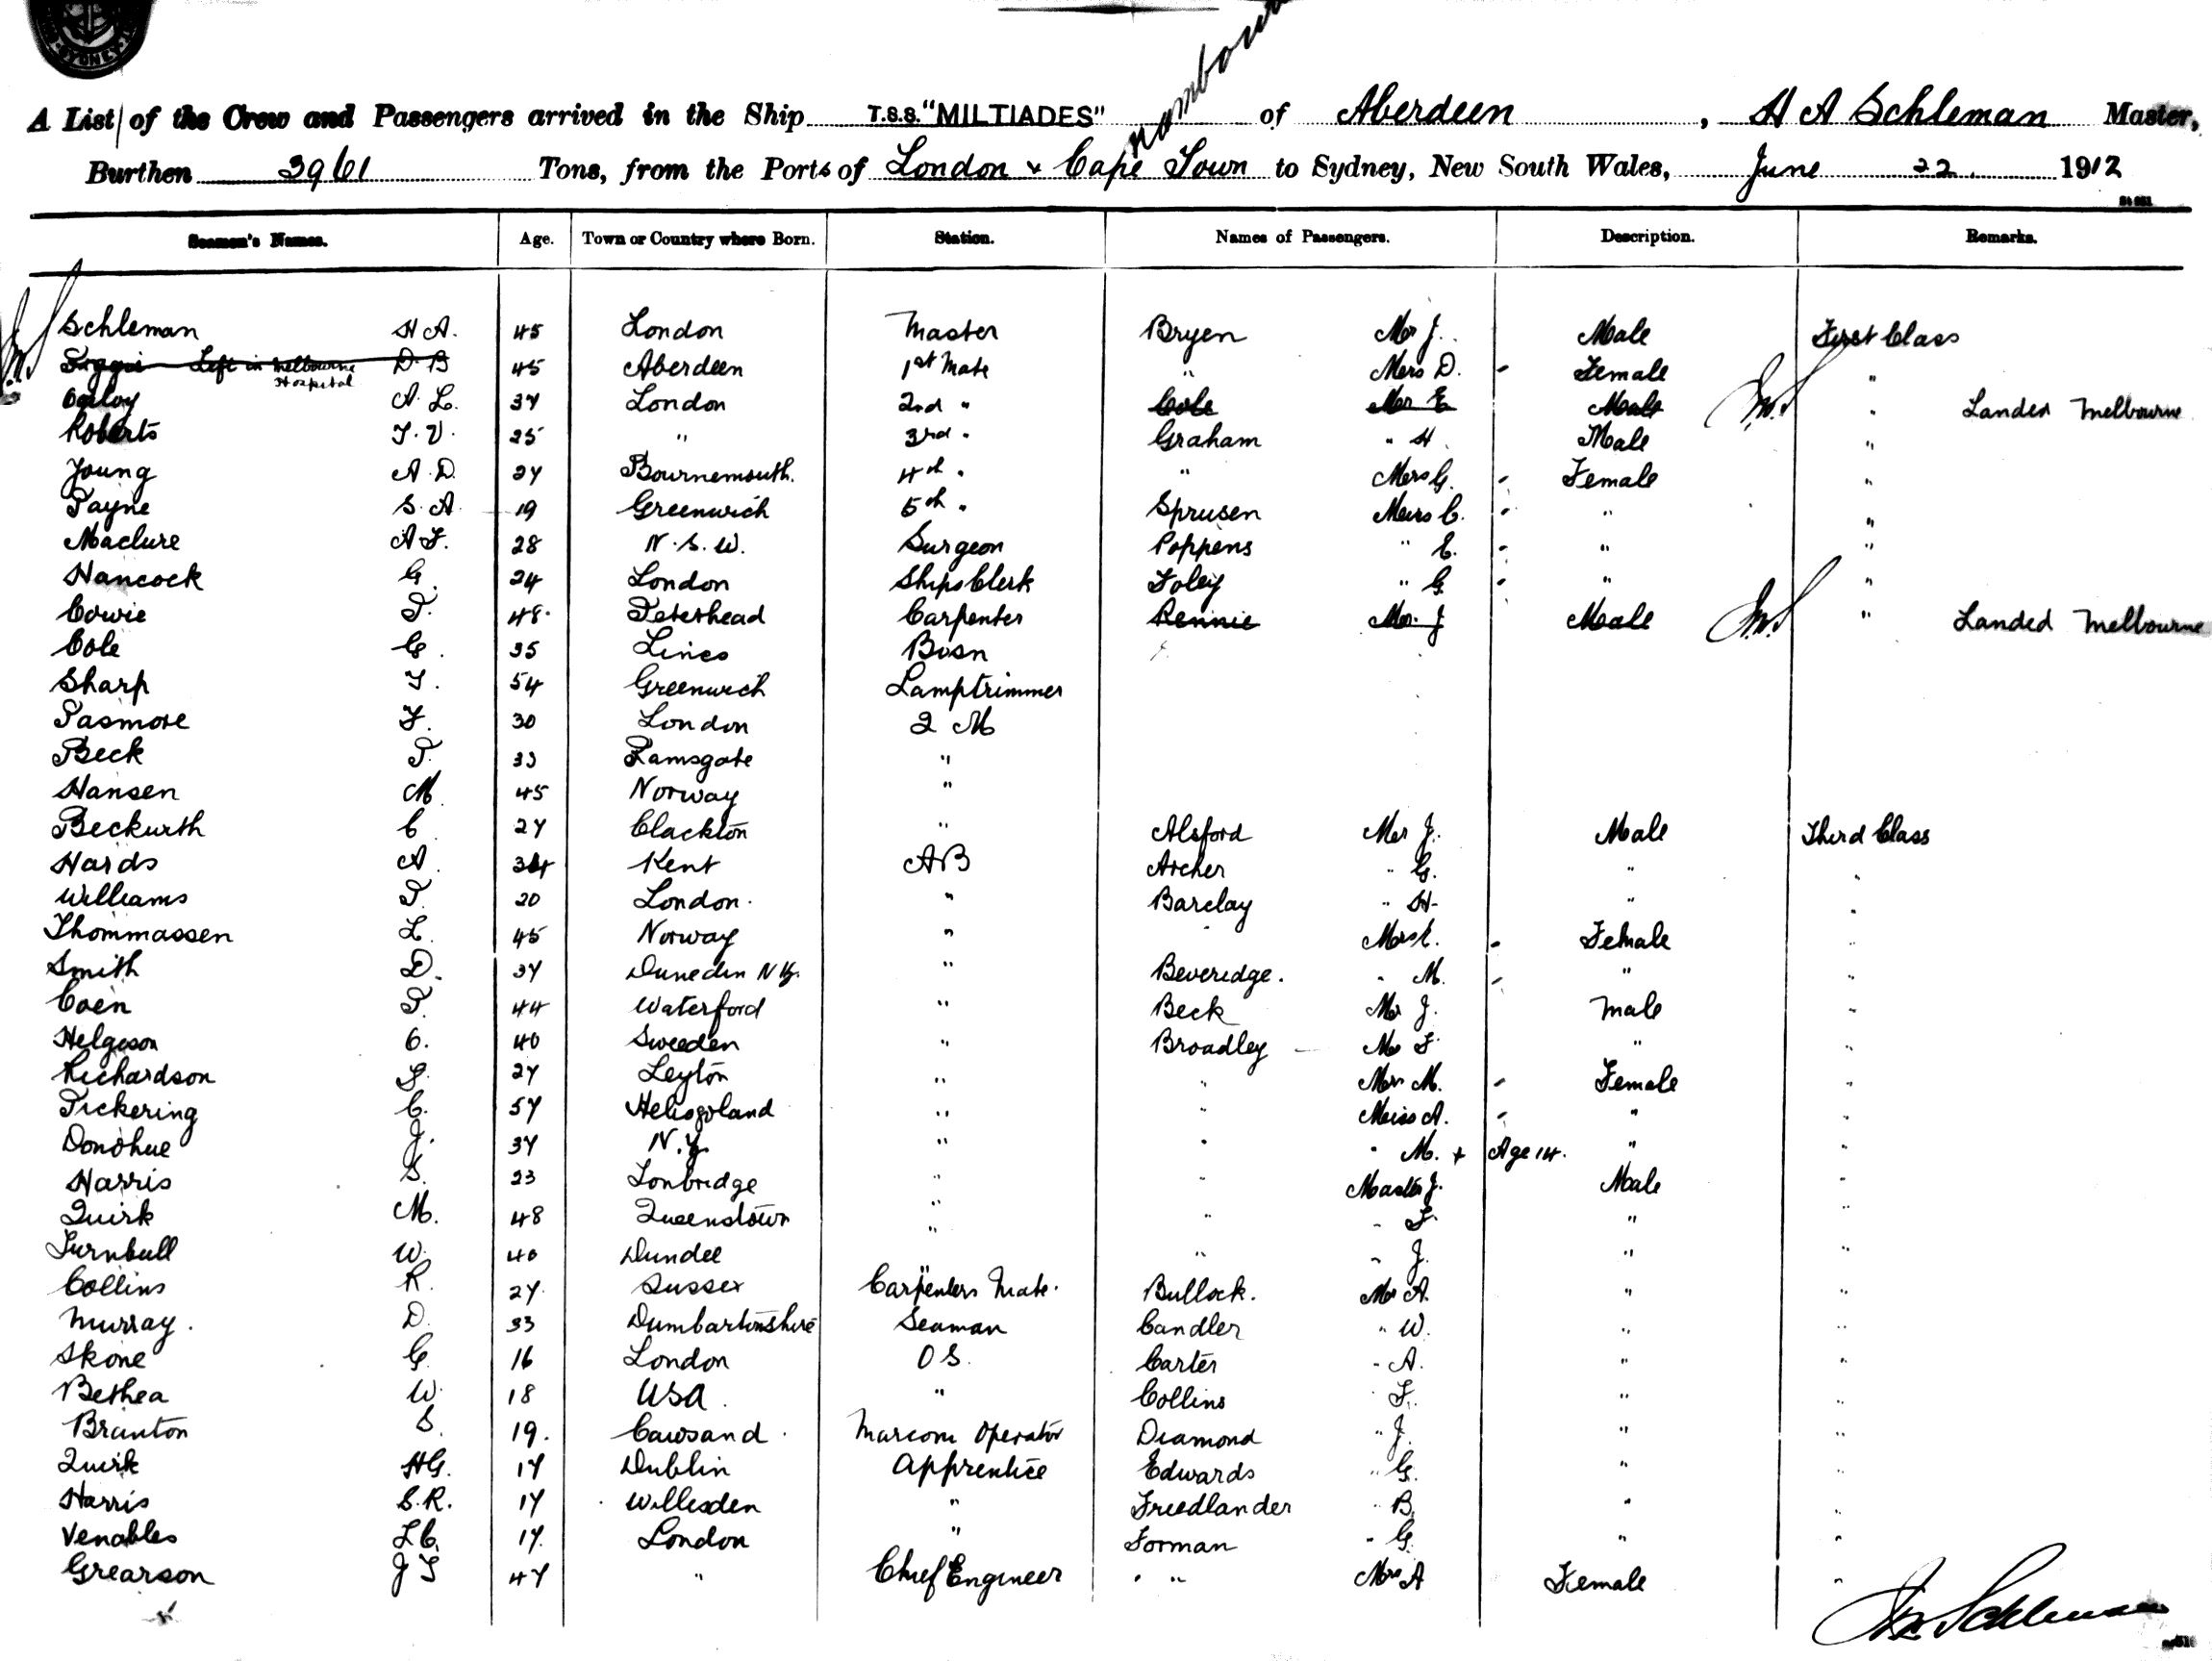 SYDNEY
A List of the Crew and Passengers arrived in the Ship T.S.S. "MILTIADES" of Aberdeen, H A Schleman Master,
Burthen 3961 Tons, from the Ports of London & Cape Town to Sydney, New South Wales, June 22. 1912
Seamen's Names. Age. Town or Country where Born. Station. Names of Passengers. Description. Remarks.
Schleman H A. 45 London Master Bryen Mr J. Male First Class
Left in Melbourne Hospital D. B 45 Aberdeen 1st Mate " Mrs D. - Female "
A. L. 37 London 2nd " Cole Mr E Male " Landed Melbourne
Roberts T. V. 25 " 3rd " Graham " H. Male "
Young A. D. 27 Bournemouth. 4th " " Mrs G. - Female "
Payne S. A. 19 Greenwich 5th " Sprusen Miss C. - " "
Maclure A F. 28 N. S. W. Surgeon Poppens " E. - " "
Hancock G. 24 London Ships Clerk Foley " G. - " "
Cowie P. 48. Peterhead Carpenter Rennie Mr. J Male " Landed Melbourne
Cole G. 35 Lincs Bosn
Sharp T. 54 Greenwich Lamptrimmer
Pasmore F. 30 London Q M
Beck P. 33 Ramsgate "
Hansen M. 45 Norway "
Beckurth C. 27 Clackton " Alsford Mr J. Male Third Class
Hards A. 34 Kent AB Archer " G. " "
Williams P. 20 London. " Barclay " H. " "
Thommassen L. 45 Norway " Mrs K. - Female "
Smith D. 37 Dunedin N Z. " Beveridge. " M. - " "
Coen P. 44 Waterford " Beck Mr J. Male "
Helgeson C. 40 Sweden " Broadley Mr F. " "
Richardson G. 27 Leyton " " Mrs M. - Female "
Pickering C. 57 Heligoland " " Miss A. - " "
Donohue J. 37 N. Z. " " " M. + Age 14. " "
Harris S. 23 Tonbridge " " Master J. Male "
Quirk M. 48 Queenstown " " " F. " "
Turnbull W. 40 Dundee " " " J. " "
Collins R. 27. Sussex Carpenters Mate. Bullock. Mr A. " "
Murray. D. 33 Dumbartonshire Seaman Candler " W. " "
Skone G. 16 London O S. Carter " A. " "
Bethea W. 18 USA. " Collins " F. " "
Branton S. 19. Cawsand. Marconi Operator Diamond " J. " "
Quirk HG. 17 Dublin Apprentice Edwards " G. " "
Harris S. R. 17 Willesden " Friedlander " B. " "
Venables L C. 17. London " Forman " G. " "
Grearson J T 47 " Chief Engineer " " Mrs A Female "
Schleman